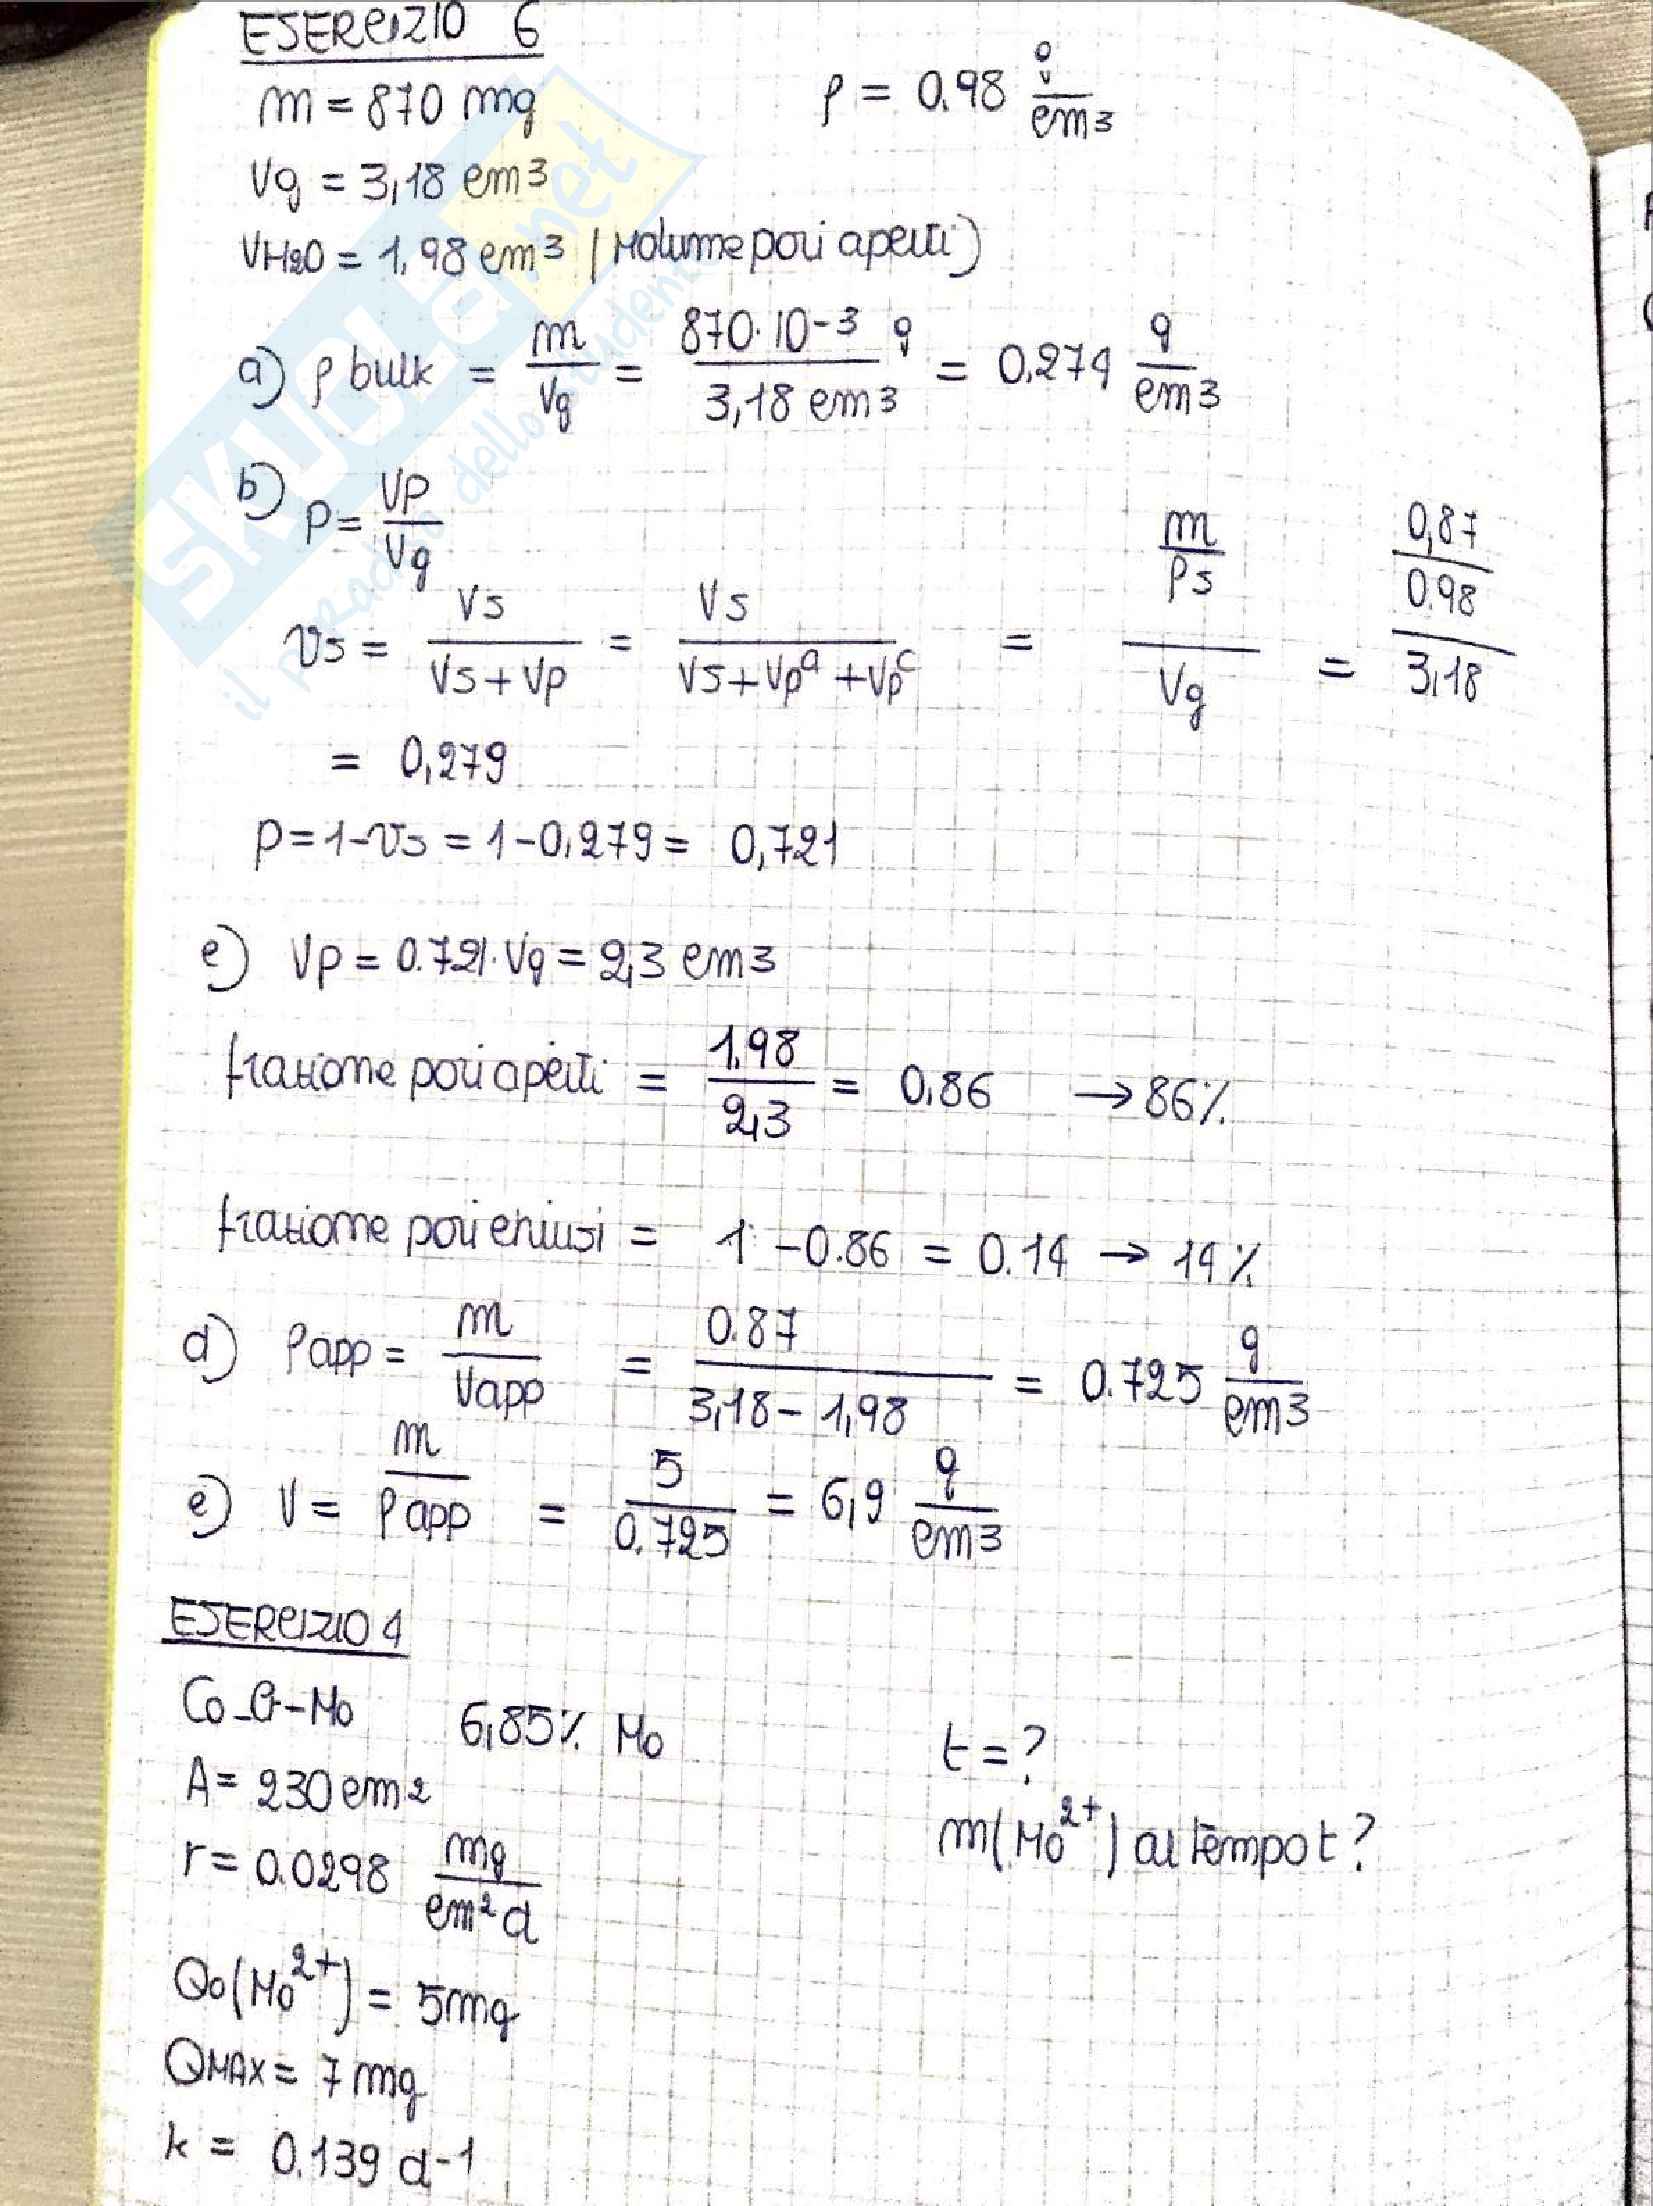 ESERCIZIO 6
m = 870 mg ρ = 0.98 g/cm3
Vg = 3,18 cm3
VH2O = 1,98 cm3 (volume pori aperti)
a) ρ bulk = m/Vg = 870·10-3 g / 3,18 cm3 = 0.274 g/cm3
b) p = Vp/Vg
vs = Vs/(Vs+Vp) = Vs/(Vs+Vpᵃ+Vpᶜ) = (m/ρs)/Vg = (0,87/0.98)/3,18
= 0,279
p=1-vs = 1-0,279 = 0,721
c) Vp = 0.721·Vg = 2,3 cm3
frazione pori aperti = 1.98/2,3 = 0,86 → 86%
frazione pori chiusi = 1 - 0.86 = 0.14 → 14%
d) ρapp = m/Vapp = 0.87/(3,18 - 1,98) = 0.725 g/cm3
e) V = m/ρapp = 5/0.725 = 6,9 g/cm3
ESERCIZIO 4
Co-Cr-Mo 6,85% Mo
A = 230 cm2 t = ?
r = 0.0298 mg/cm² d m(Mo²⁺) al tempo t?
Qo(Mo²⁺) = 5mg
QMAX = 7 mg
k = 0.139 d-1
SKUOLA.net
il paradiso dello studente